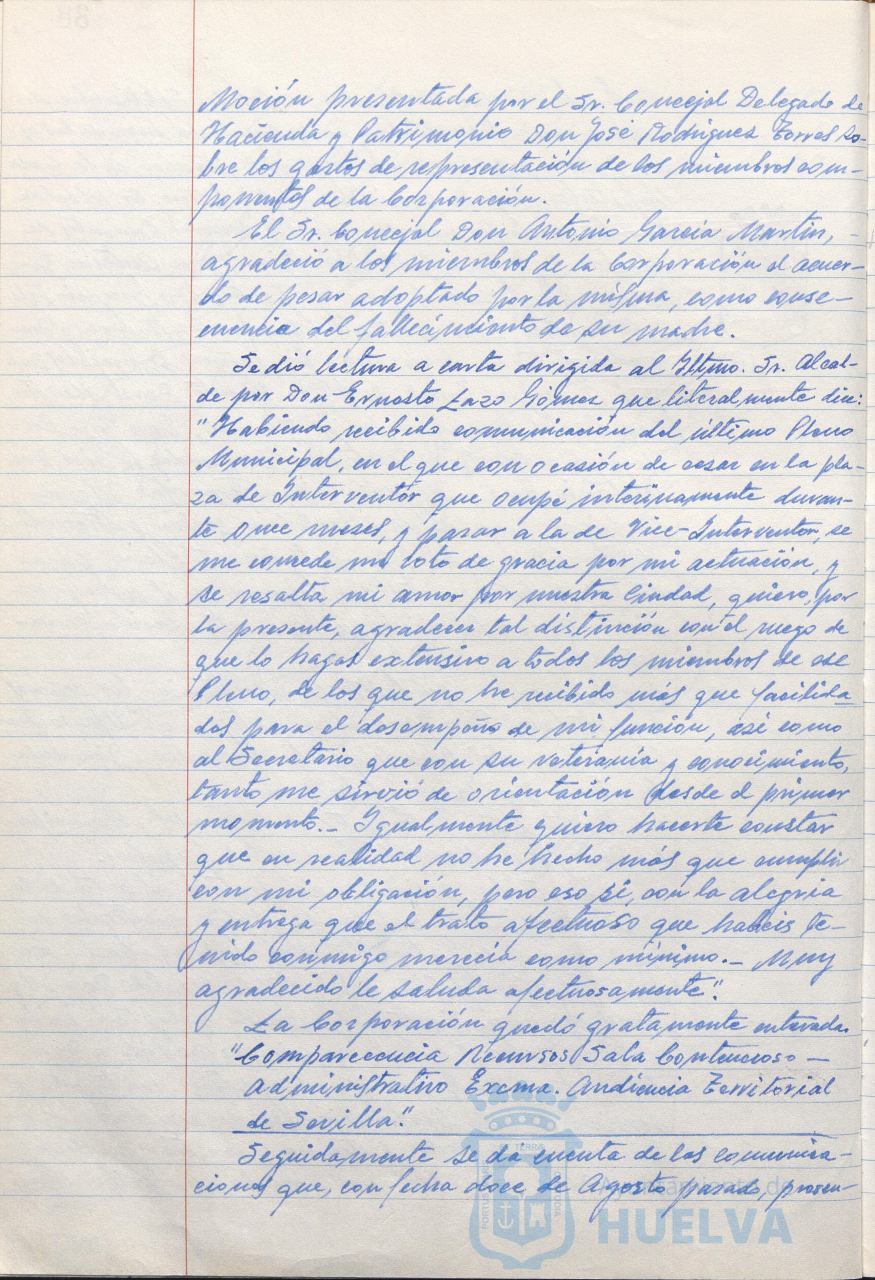 Moción presentada por el Sr. Concejal Delegado de
Hacienda y Patrimonio Don José Rodríguez Torres so-
bre los gastos de representación de los miembros com-
ponentes de la Corporación.
El Sr. Concejal Don Antonio García Martín, -
agradeció a los miembros de la Corporación el acuer-
do de pesar adoptado por la misma, como conse-
cuencia del fallecimiento de su madre.
Se dió lectura a carta dirigida al Iltmo. Sr. Alcal-
de por Don Ernesto Lazo Gómez que literalmente dice:
"Habiendo recibido comunicación del último Pleno
Municipal, en el que con ocasión de cesar en la pla-
za de Interventor que ocupé interinamente duran-
te once meses, y pasar a la de Vice-Interventor, se
me concede un voto de gracia por mi actuación, y
se resalta mi amor por nuestra Ciudad, quiero, por
la presente, agradecer tal distinción con el ruego de
que lo hagas extensivo a todos los miembros de ese
Pleno, de los que no he recibido más que facilida-
des para el desempeño de mi función, así como
al Secretario que con su veteranía y conocimiento,
tanto me sirvió de orientación desde el primer
momento.- Igualmente quiero hacerte constar
que en realidad no he hecho más que cumplir
con mi obligación, pero eso si, con la alegria
y entrega que el trato afectuoso que habeis te-
nido conmigo merecía como mínimo.- Muy
agradecido le saluda afectuosamente".
La Corporación quedó gratamente enterada.
"Comparecencia Recursos Sala Contencioso -
Administrativo Excma. Audiencia Territorial
de Sevilla".
Seguidamente se da cuenta de las comunica-
ciones que, con fecha doce de Agosto pasado, presen-
HUELVA